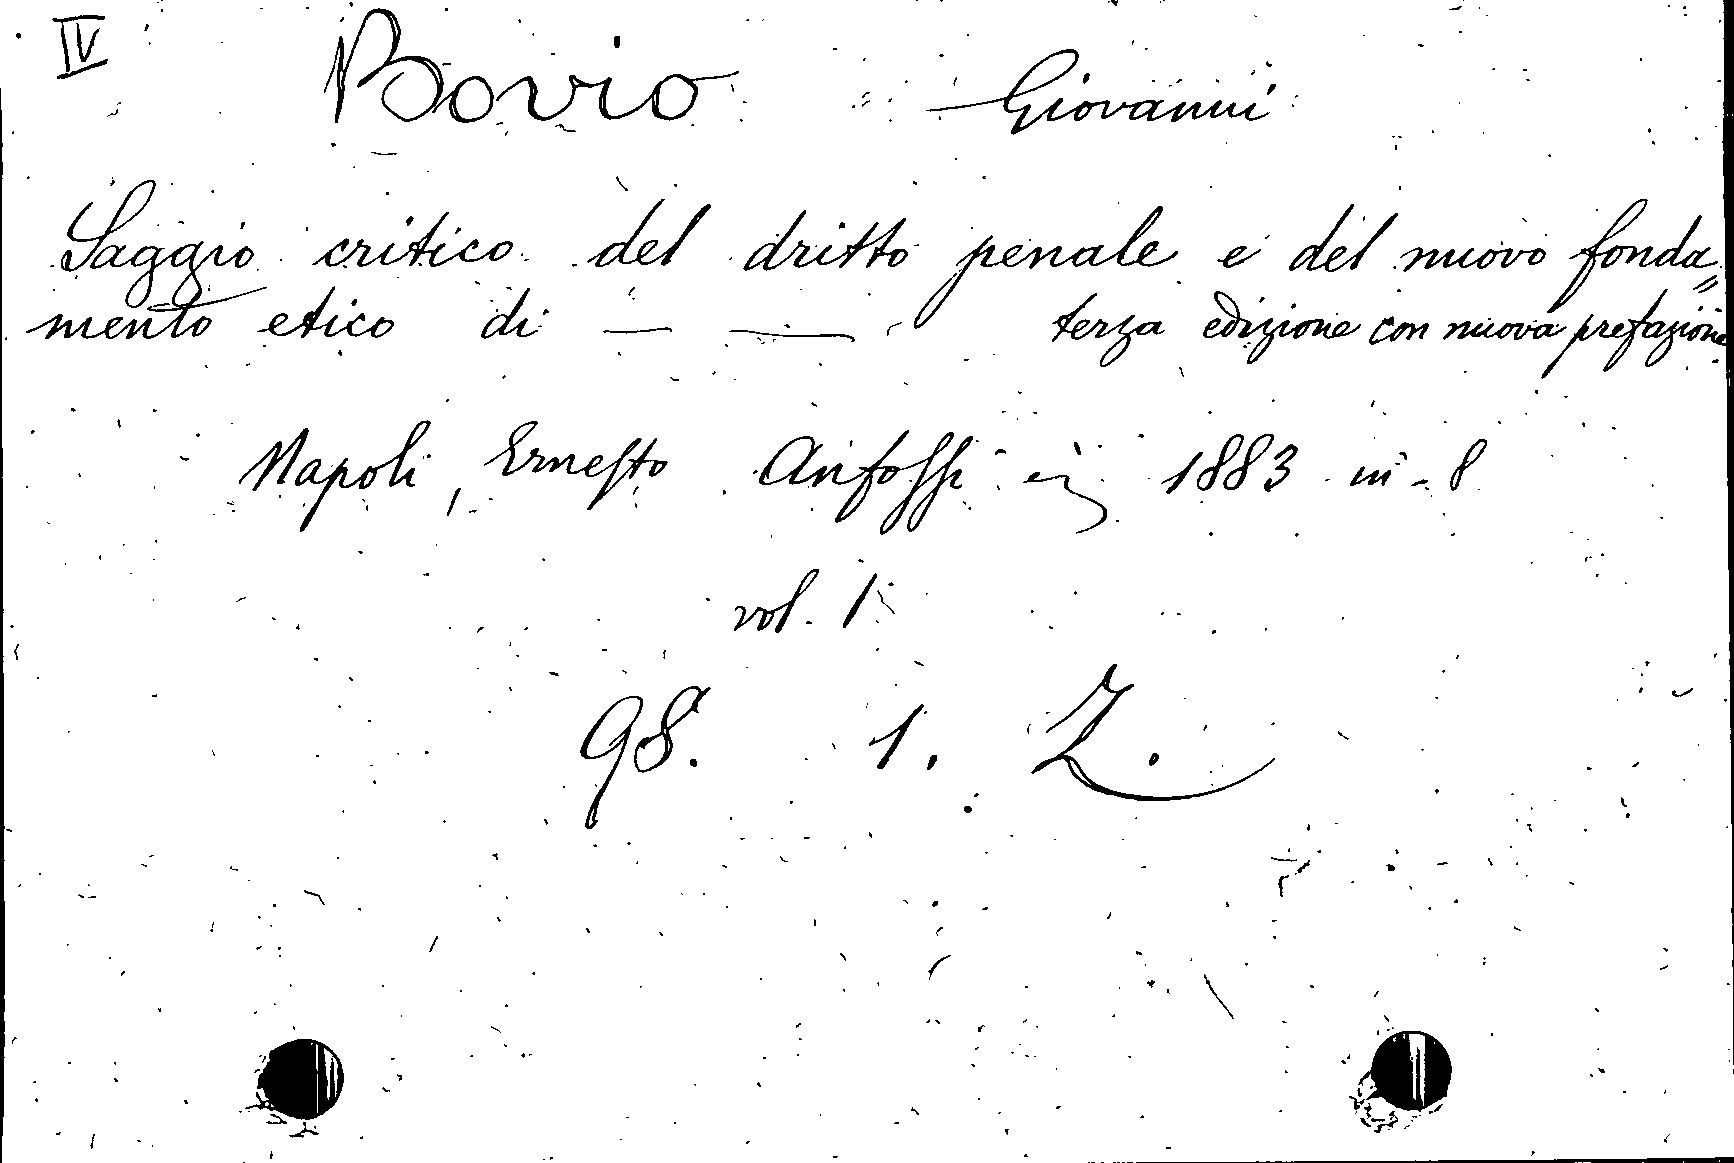 IV Bovio Giovanni
Saggio critico del dritto penale e del nuovo fonda„
mento etico di — — terza edizione con nuova prefazione
Napoli, Ernesto Anfossi 1883 in-8
vol. 1
98. 1. Z.